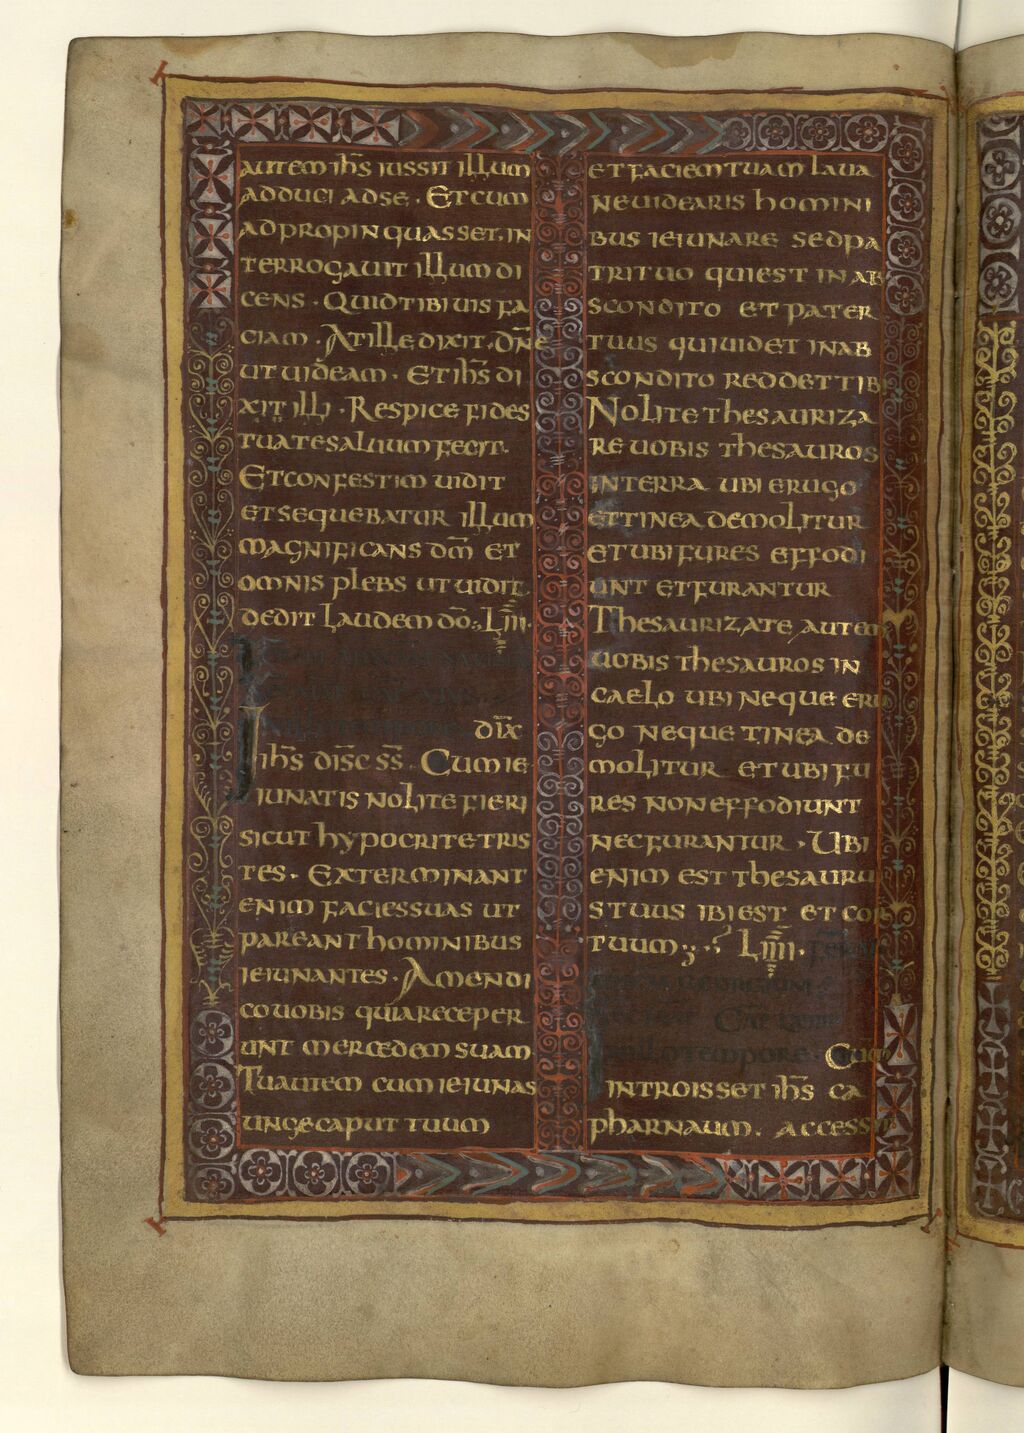 autem ih̅s iussit illum
adduci adse . Et cum
adpropinquasset . in
terrogauit illum di
cens . Quid tibi uis fa
ciam . At ille dixit . dn̅e
ut uideam . Et ih̅s di
xit illi . Respice fides
tua te saluum fecit .
Et confestim uidit
et sequebatur illum
magnificans dm̅ et
omnis plebs ut uidit
dedit laudem do̅ :, Liiii .
dix̅
ih̅s dis̅c ss̅ . Cum ie
iunatis nolite fieri
sicut hypocrite tris
tes . Exterminant
enim facies suas ut
pareant hominibus
ieiunantes . Amen di
co uobis quia receper
unt mercedem suam
Tu autem cum ieiunas
unge caput tuum
et faciem tuam laua
ne uidearis homini
bus ieiunare sed pa
tri tuo qui est in ab
scondito et pater
tuus qui uidet in ab
scondito reddet tibi
Nolite thesauriza
re uobis thesauros
in terra ubi erugo
et tinea demolitur
et ubi fures effodi
unt et furantur
Thesaurizate autem
uobis thesauros in
caelo ubi neque eru
go neque tinea de
molitur et ubi fu
res non effodiunt
nec furantur . Ubi
enim est thesauru
s tuus ibi est et cor
tuum :, . Liiiii . feria
Cat
In illo tempore . Cum
introisset ih̅s ca
pharnaum . accessit